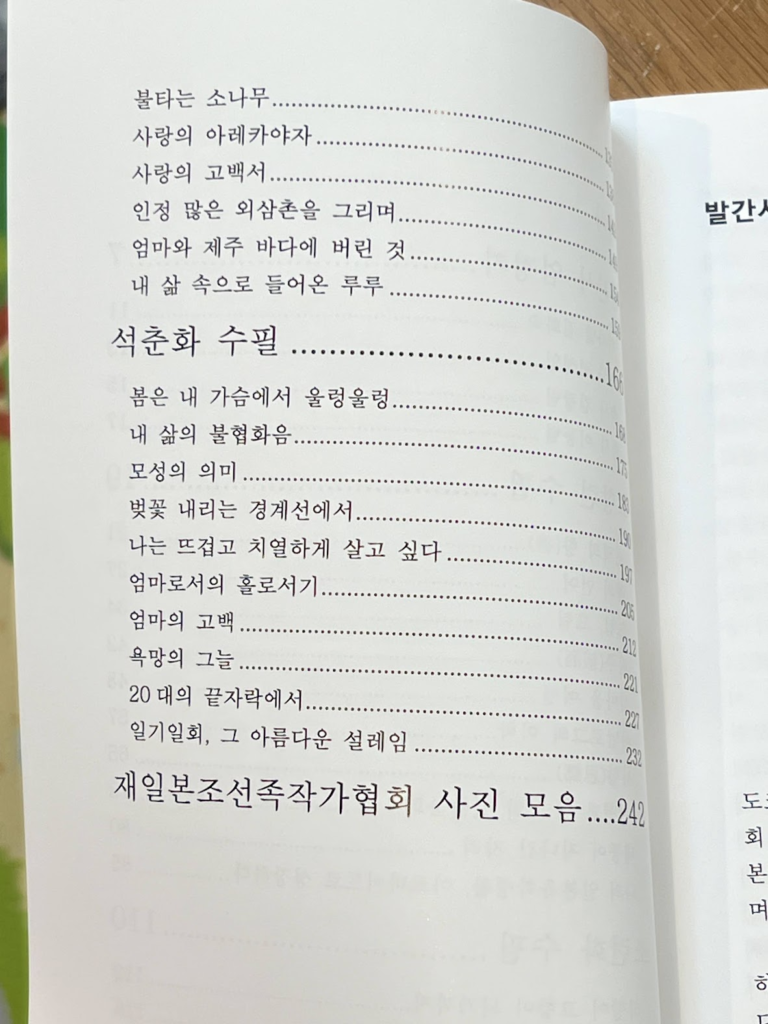 불타는 소나무
사랑의 아레카야자
사랑의 고백서
인정 많은 외삼촌을 그리며
엄마와 제주 바다에 버린 것
내 삶 속으로 들어온 루루
석춘화 수필 166
봄은 내 가슴에서 울렁울렁 168
내 삶의 불협화음 175
모성의 의미 183
벚꽃 내리는 경계선에서 190
나는 뜨겁고 치열하게 살고 싶다 197
엄마로서의 홀로서기 205
엄마의 고백 212
욕망의 그늘 221
20대의 끝자락에서 227
일기일회, 그 아름다운 설레임 232
재일본조선족작가협회 사진 모음 242
회
본
며